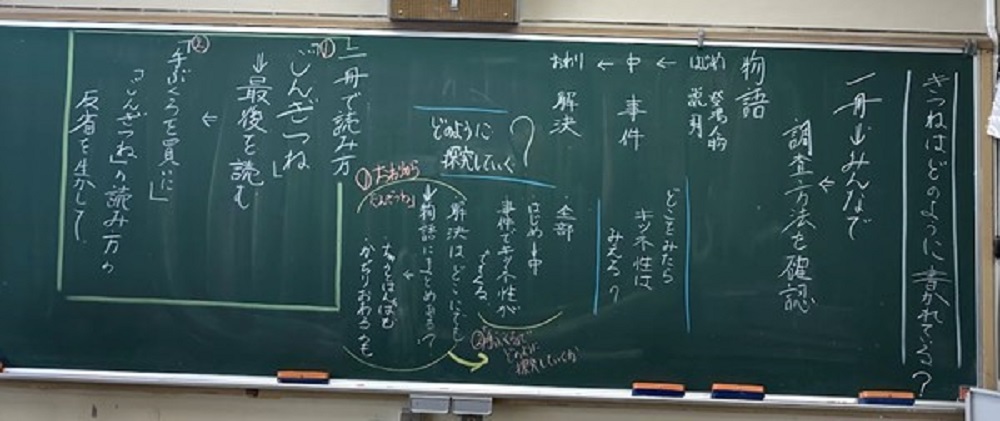 きつねはどのように書かれている?
一冊目みんなで
↓
調査方法を確認
物語
はじめ → 中 → おわり
登場人物
説明
事件
解決
どこをみたら
キツネ性は
みえる?
どのように
探究していく?
全部
はじめ→中
事件でキツネ性が
でてくる
解決はどこにでも
物語にまとめある?
②
どのように
探究していくか
①
一冊で読み方
「ごんぎつね」
→最後を読む
↓
②
「手ぶくろを買いに」
「ごんぎつね」の読み方の
反省を生かして